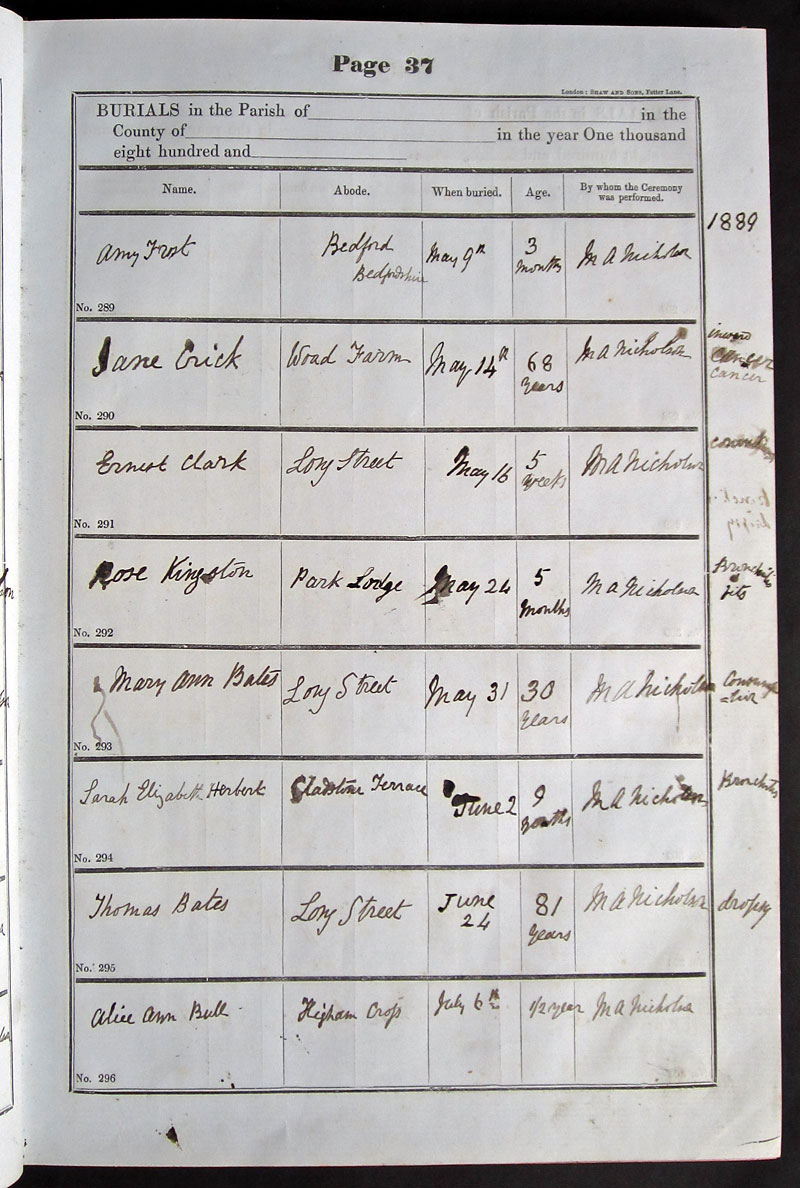 Page 37
London: SHAW AND SONS, Fetter Lane.
BURIALS in the Parish of in the
County of in the year One thousand
eight hundred and
Name. Abode. When buried. Age. By whom the Ceremony
was performed.
1889
Amy Frost Bedford May 9th 3 M A Nicholson
Bedfordshire months
No. 289
Jane Erick Woad Farm May 14th 68 M A Nicholson inward
years cancer
cancer
No. 290
Ernest Clark Long Street May 16 5 M A Nicholson
weeks
No. 291
Rose Kingston Park Lodge May 24 5 M A Nicholson Bronchitis
months fits
No. 292
Mary Ann Bates Long Street May 31 30 M A Nicholson Consump
years -tion
No. 293
Sarah Elizabeth Herbert Gladstone Terrace June 2 9 M A Nicholson Bronchitis
months
No. 294
Thomas Bates Long Street June 81 M A Nicholson dropsy
24 years
No. 295
Alice Ann Bull Higham Cross July 6th 1/2 year M A Nicholson
No. 296